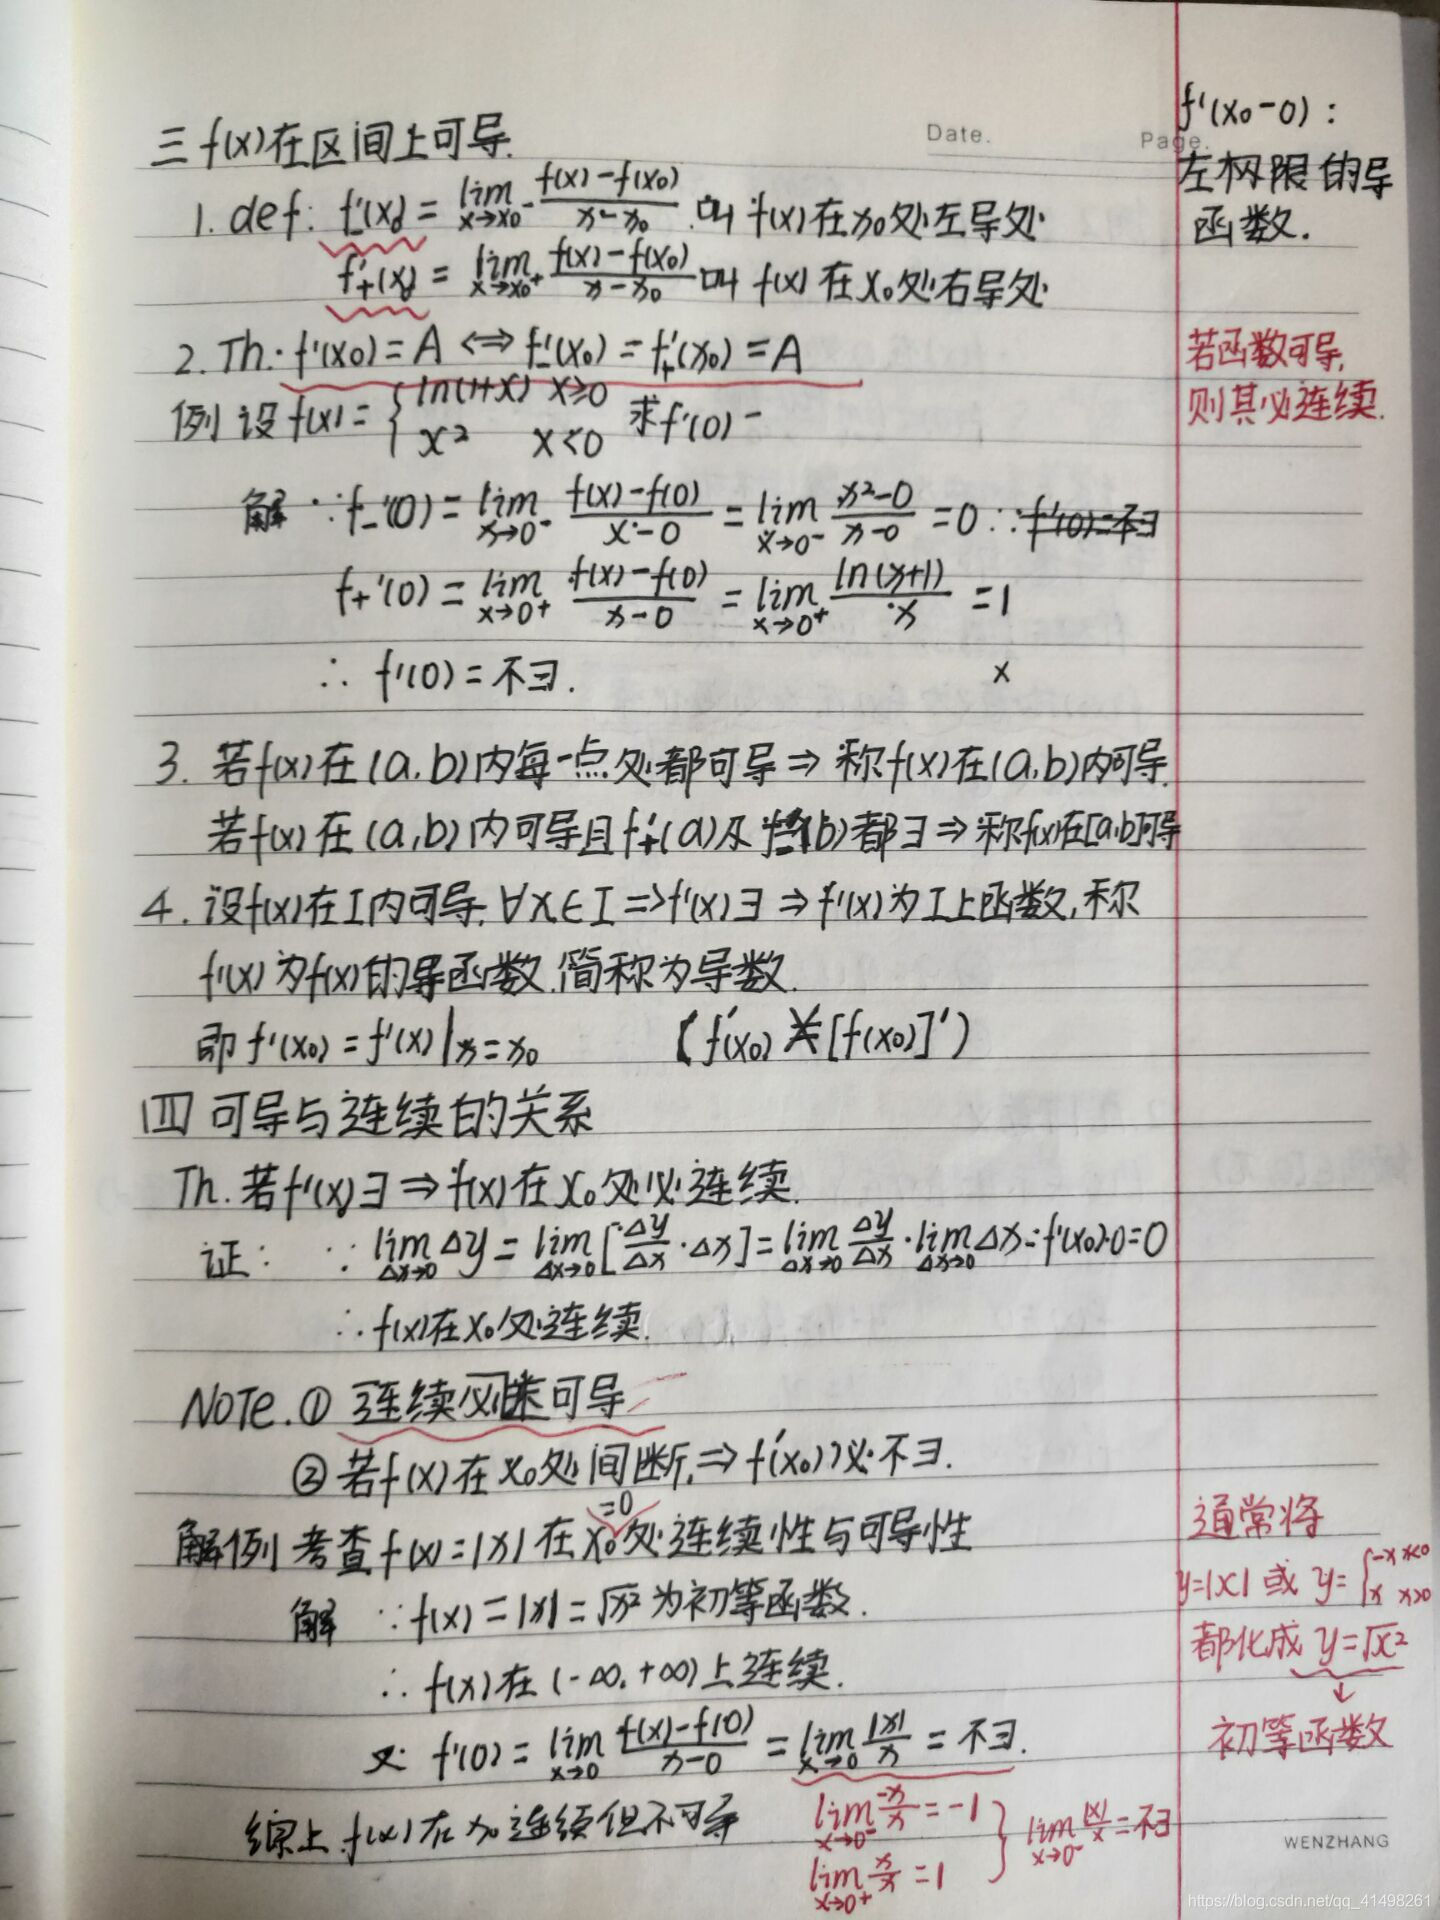 Date.
Page.
三 f(x)在区间上可导.
1. def: f'₋(x₀) = lim x→x₀⁻ (f(x)-f(x₀))/(x-x₀) 叫 f(x)在x₀处左导处
f'₊(x₀) = lim x→x₀⁺ (f(x)-f(x₀))/(x-x₀) 叫 f(x)在x₀处右导处
2. Th. f'(x₀)=A ⇔ f'₋(x₀)=f'₊(x₀)=A
例 设 f(x)= { ln(1+x) x≥0
x² x<0 求f'(0)
解 ∵ f₋'(0) = lim x→0⁻ (f(x)-f(0))/(x-0) = lim x→0⁻ (x²-0)/(x-0) = 0 ∵ f'(0)=不∃
f₊'(0) = lim x→0⁺ (f(x)-f(0))/(x-0) = lim x→0⁺ ln(x+1)/x = 1
∴ f'(0)=不∃. x
3. 若f(x)在(a,b)内每一点处都可导⇒ 称f(x)在(a,b)内可导.
若f(x)在(a,b)内可导且f'₊(a)及f'₋(b)都∃⇒称f(x)在[a,b]可导
4. 设f(x)在I内可导, ∀x∈I ⇒f'(x)∃ ⇒ f'(x)为I上函数,称
f'(x)为f(x)的导函数.简称为导数.
即 f'(x₀)=f'(x)|x=x₀ (f'(x₀) ≠ [f(x₀)]')
四 可导与连续的关系
Th. 若f'(x₀)∃⇒f(x)在x₀处必连续.
证: ∵ lim Δx→0 Δy = lim Δx→0 [Δy/Δx · Δx] = lim Δx→0 Δy/Δx · lim Δx→0 Δx = f'(x₀)·0=0
∴ f(x)在x₀处连续.
NOTE. ① 连续可导
② 若f(x)在x₀处间断,⇒ f'(x₀)必不∃.
=0
解例 考查f(x)=|x|在x₀处连续性与可导性
解 ∵ f(x)=|x|=√x²为初等函数.
∴ f(x)在(-∞,+∞)上连续.
又∵ f'(0) = lim x→0 (f(x)-f(0))/(x-0) = lim x→0 |x|/x = 不∃.
综上 f(x)在x₀连续但不可导
lim x→0⁻ -x/x = -1
lim x→0⁺ x/x = 1
} lim x→0⁻ |x|/x = 不∃
f'(x₀-0):
左极限的导
函数.
若函数可导,
则其必连续.
通常将
y=|x| 或 y= { -x x<0
x x>0
都化成 y=√x²
↓
初等函数
WENZHANG
https://blog.csdn.net/qq_41498261